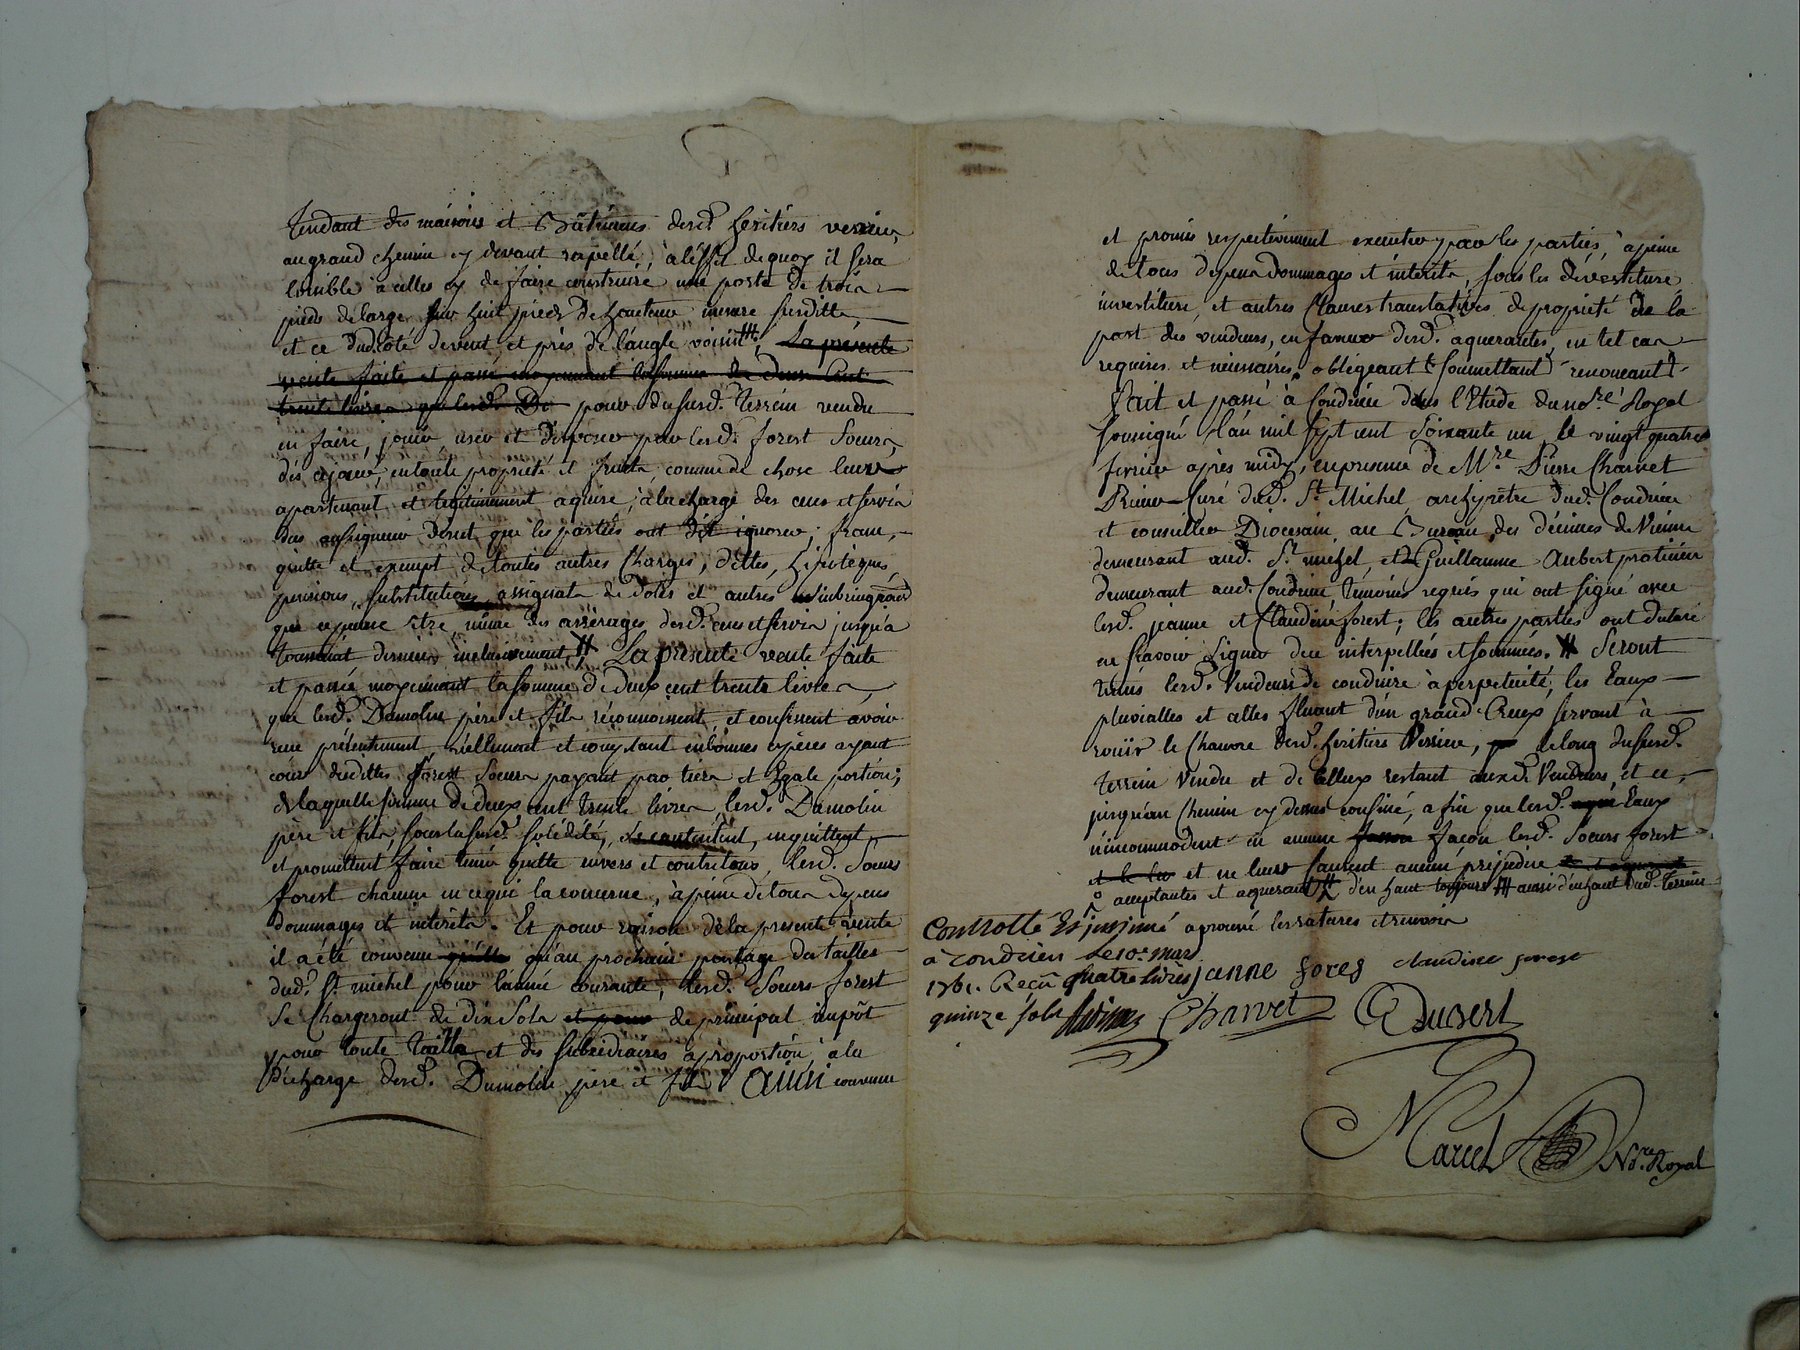 tendant des maisons et Bâtiments desd. heritiers verrier
au grand chemin cy devant rapellé, à léffet de quoy il sera
loisible à celles cy de faire construire une porte de trois
pieds de large sur huit pieds de hauteur mesure susditte
et ce dud. côté devent et près de l'angle voisin ; La presente
vente faite et passé moyennant la somme de deux Cent
trente livres que lesd. De pour du susd. terrein vendu
en faire, jouir user et disposer par lesd. forest Soeurs
dès ajourd, en toute propriété et fruits comme de chose leur
apartenant et légitimement aquise, à la charge des cens et servis
dus au seigneur direct que les parties ont dit ignorer ; franc,
quitte et exempt de toutes autres Charges, dettes, hipoteques
pensions, substitutions, assignats de dotes et autres
que ce puisse être, même des arrérages desd. cens et servis jusqu'a
toussaint dernier inclusivement # La présente vente faite
et passée moyennant la somme de deux cent trente livres
que lesd. Dumolin père et fils réconnoissent et confessent avoir
reçu présentement, réellement et comptant en bonnes espèces ayant
cour desdittes forest Soeurs payant par tiers et Egale portion ;
de laquelle somme de deux cent trente livres, lesd. Dumolin
père et fils, sous la susd. solidité, se contentent, en quittent
et promettent faire tenir quitte envers et contre tous, lesd. Soeurs
forest chacune en ce qui la concerne, à peine de tous dépens
dommages et intérêts. Et pour raison de la presente vente
il a été convenu quitte qu'au prochain partage des tailles
dud. St. michel pour l'année courante, lesd. Soeurs forest
Se Chargeront de dix Sols et pour de principal impôt
pour toute taille et des subsidiaires à proportion, à la
décharge desd. Dumolin père et fils Ainsi convenu
et promis respectivement executer par les parties à peine
de tous depens dommages et intérêts, sous les dévéstiture
investiture, et autres Clauses translatives de propriété de la
part des vendeurs, en faveur desd. aquerantes, en tel cas
requises et nécessaires, obligeant soumettant renonceant
fait et passé à Condrieu dans l'Etude du nore. Royal
soussigné l'an mil sept cent Soixante un, le vingt quatre
fevrier après midy, en presence de Mre. Pierre Charvet
Prieur Curé dud. St Michel, archiprêtre dud. Condrieu
et conseiller Diocesain au Bureau des décimes de Vienne
demeurant aud. St. michel, et de Guillaume Aubert praticien
demeurant aud. Condrieu, témoins requis qui ont signé avec
lesd. jeanne et Claudine forest ; les autres parties ont declaré
ne scavoir signer de ce interpellées et sommées. # Seront
tenus lesd. Vendeurs de conduire à perpetuité, les Eaux
pluvialles et celles fluant d'un grand Creux servant à
rouïr le Chanvre desd. heritiers Verrier, le long du susd.
terrein vendu et de celluy restant auxd. Vendeurs, et ce,
jusqu'au Chemin cy dessus confiné, afin que lesd. Eaux
n'incommodent en aucune facon lesd. Soeurs forest
et ne leur fassent aucun préjudice
° acceptantes et aquerant # d'en haut toujours # aussi d'en haut dud. terrein
Controllé Et insinué aprouvé les ratures et renvois
a Condrieu le 10e mars
1761. Reçû quatre livres janne fores claudine forest
quinze sols Charvet
Marcel Nre. Royal